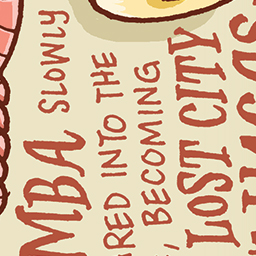 MBA SLOWLY
RED INTO THE
, BECOMING
LOST CITY